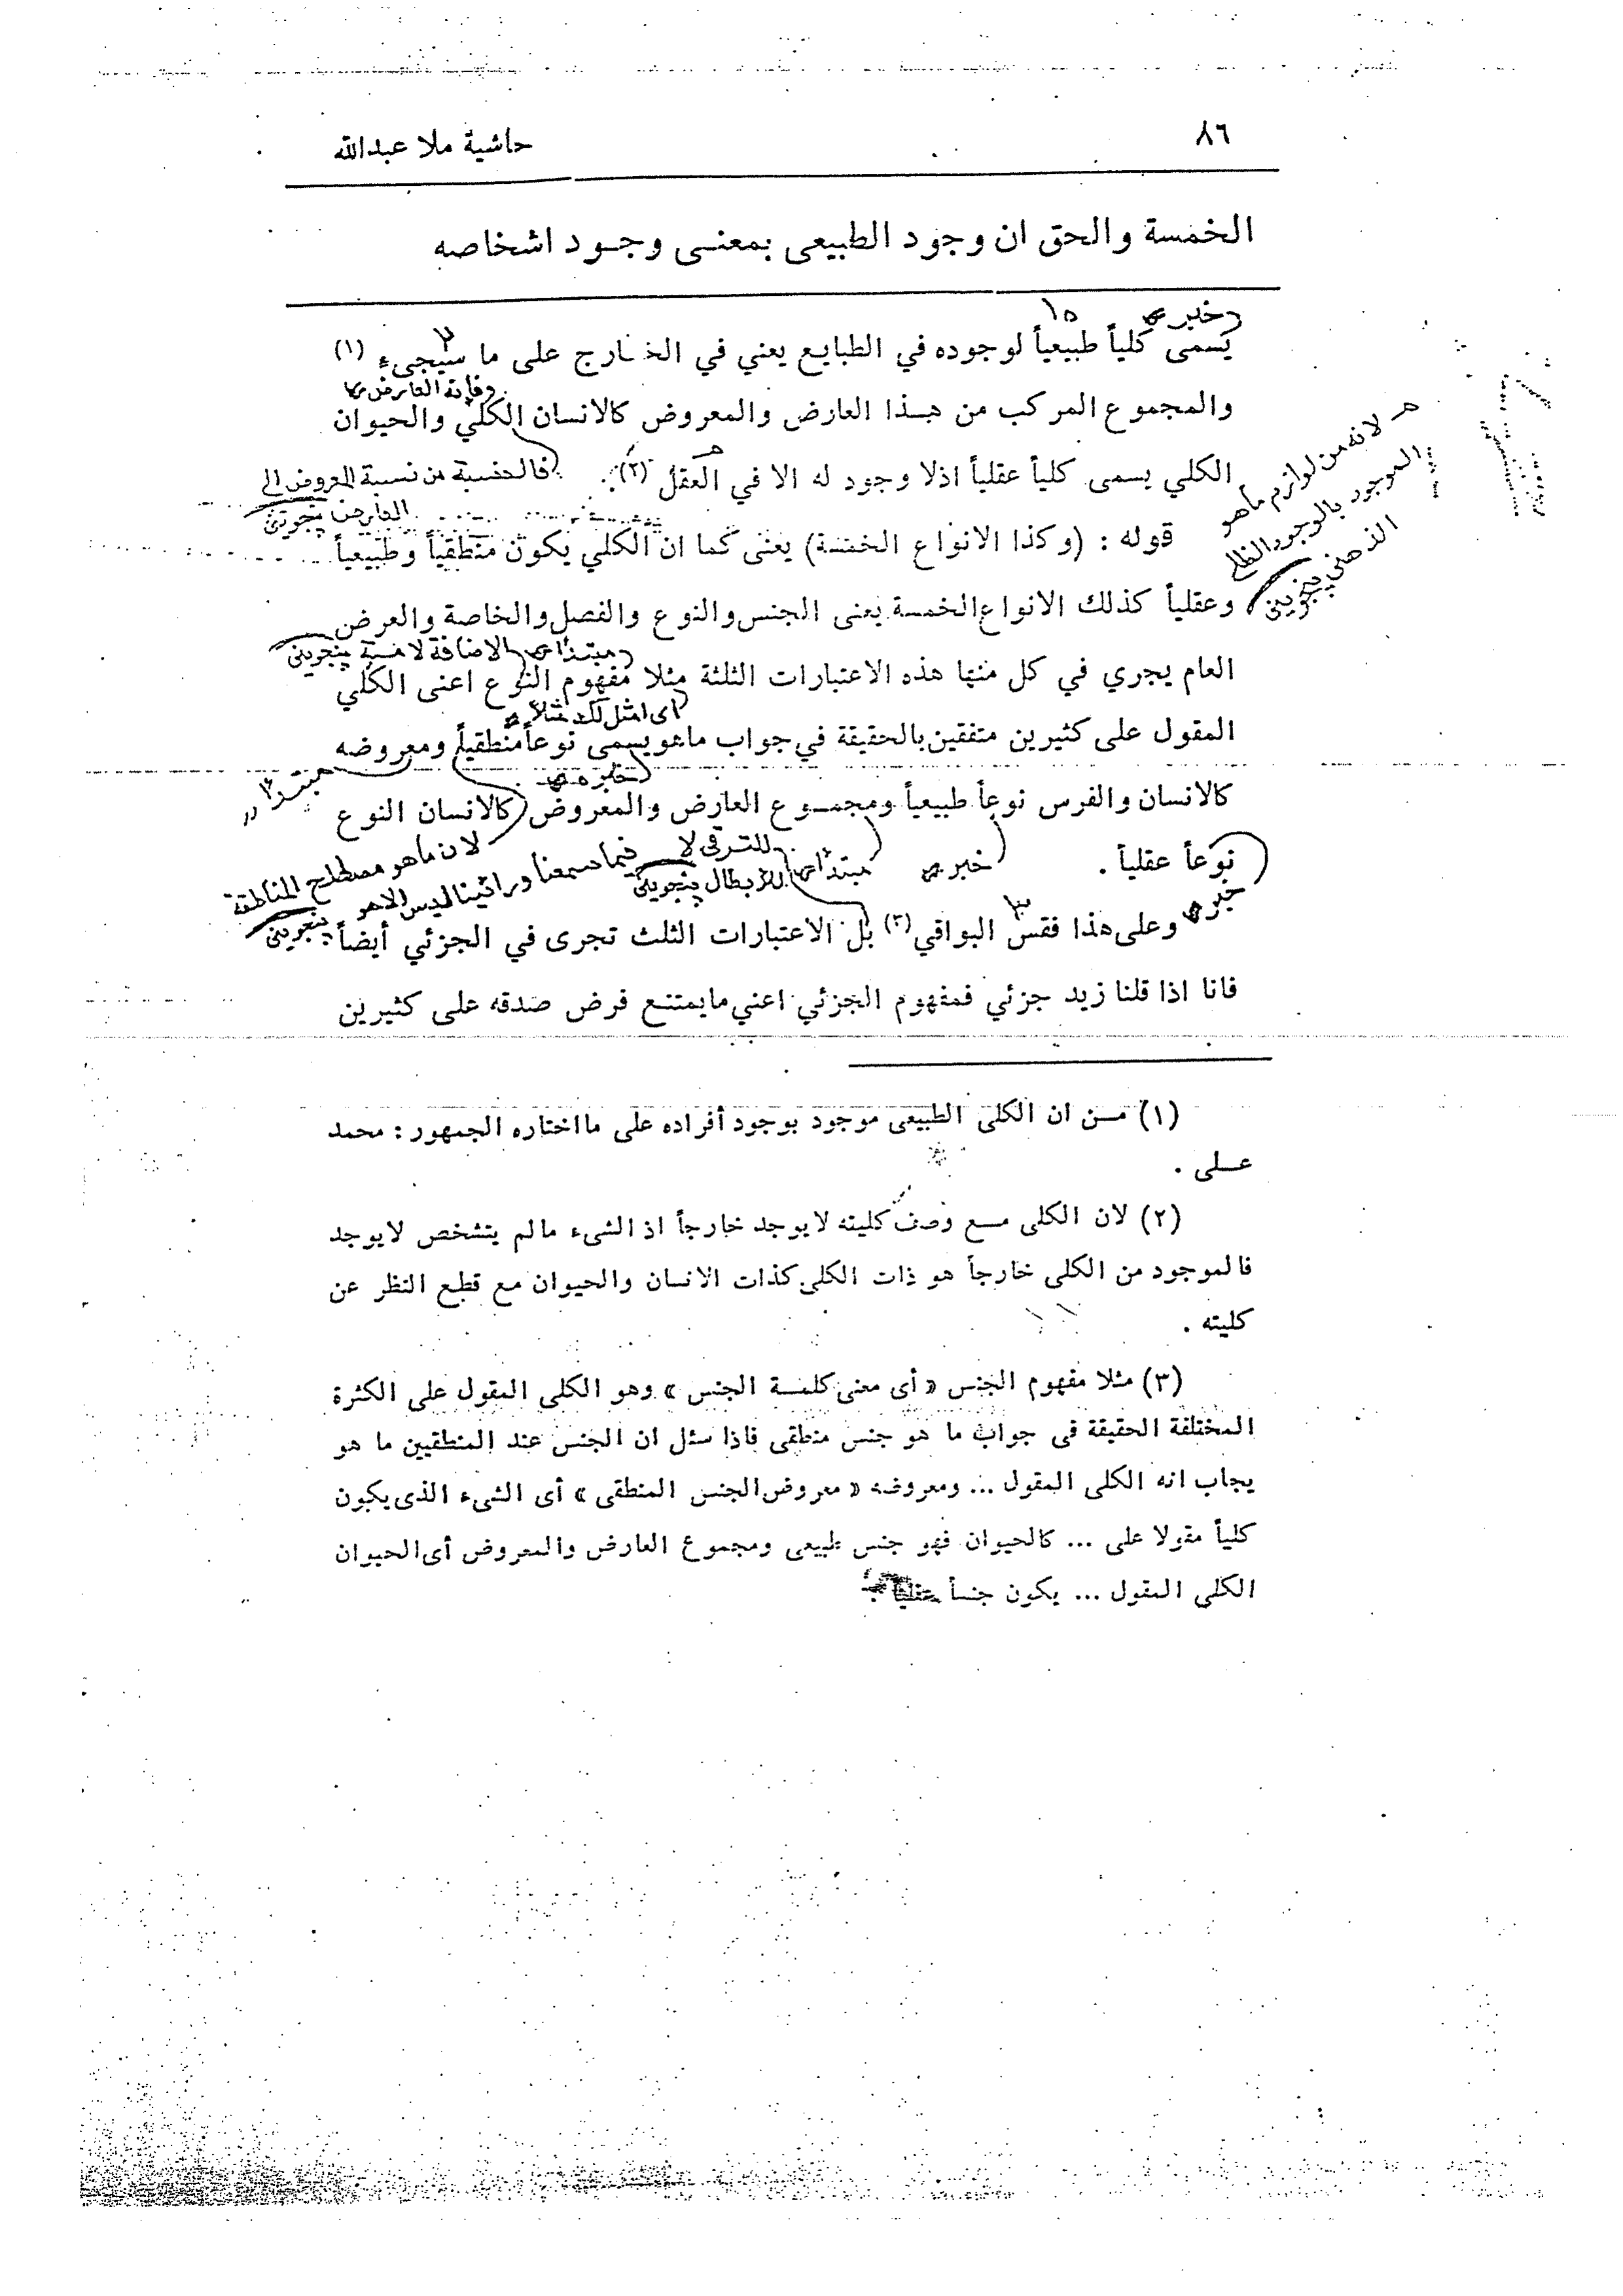 ٨٦
حاشية ملا عبدالله
الخمسة والحق ان وجود الطبيعى بمعنـى وجـود اشخاصه
خبر
يسمى كلياً طبيعياً لوجوده في الطبايع يعني في الخارج على ما سيجىء (١)
والمجموع المركب من هـذا العارض والمعروض كالانسان الكلي والحيوان
الكلي يسمى كلياً عقلياً اذلا وجود له الا في العقل (٢).
فالحنسية من نسبة المعروض الى
العارض پنجوينى
هـ لانه من لوازم ماهو
الموجود بالوجود الظلى
الذهنى پنجوينى
قوله : (وكذا الانواع الخمسة) يعنى كما ان الكلي يكون منطقياً وطبيعياً
وعقلياً كذلك الانواع الخمسة يعنى الجنس والنوع والفصل والخاصة والعرض
مبتدا الاضافة لامية پنجوينى
العام يجري في كل منها هذه الاعتبارات الثلثة مثلا مفهوم النوع اعنى الكلي
اى امثل لك مثلاً
المقول على كثيرين متفقين بالحقيقة في جواب ماهو يسمى نوعاً منطقياً ومعروضه
خبر
مبتدا
كالانسان والفرس نوعاً طبيعياً ومجمـوع العارض والمعروض كالانسان النوع
نوعاً عقلياً .
خبر
خبر
مبتدا
للترقى لا
للابطال پنجوينى
لان ماهو مصطلح المناطقة
فيما سمعنا ورائينا ليس الا هو پنجوينى
وعلى هذا فقس البواقي (٣) بل الاعتبارات الثلث تجرى في الجزئي أيضاً
فانا اذا قلنا زيد جزئي فمفهوم الجزئي اعني مايمتنع فرض صدقه على كثيرين
(١) مـن ان الكلى الطبيعى موجود بوجود أفراده على مااختاره الجمهور : محمد
عـلى .
(٢) لان الكلى مـع وصف كليته لايوجد خارجاً اذ الشىء مالم يتشخص لايوجد
فالموجود من الكلى خارجاً هو ذات الكلى كذات الانسان والحيوان مع قطع النظر عن
كليته .
(٣) مثلا مفهوم الجنس « أى معنى كلمـة الجنس » وهو الكلى المقول على الكثرة
المختلفة الحقيقة فى جواب ما هو جنس منطقى فاذا سئل ان الجنس عند المنطقيين ما هو
يجاب انه الكلى المقول ... ومعروضه « معروض الجنس المنطقى » أى الشىء الذى يكون
كلياً مقولا على ... كالحيوان فهو جنس طبيعى ومجموع العارض والمعروض أى الحيوان
الكلى المقول ... يكون جنساً عقلياً